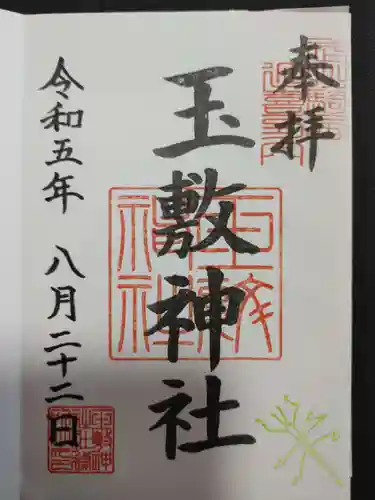 奉拝
玉敷神社
令和五年 八月二十二日